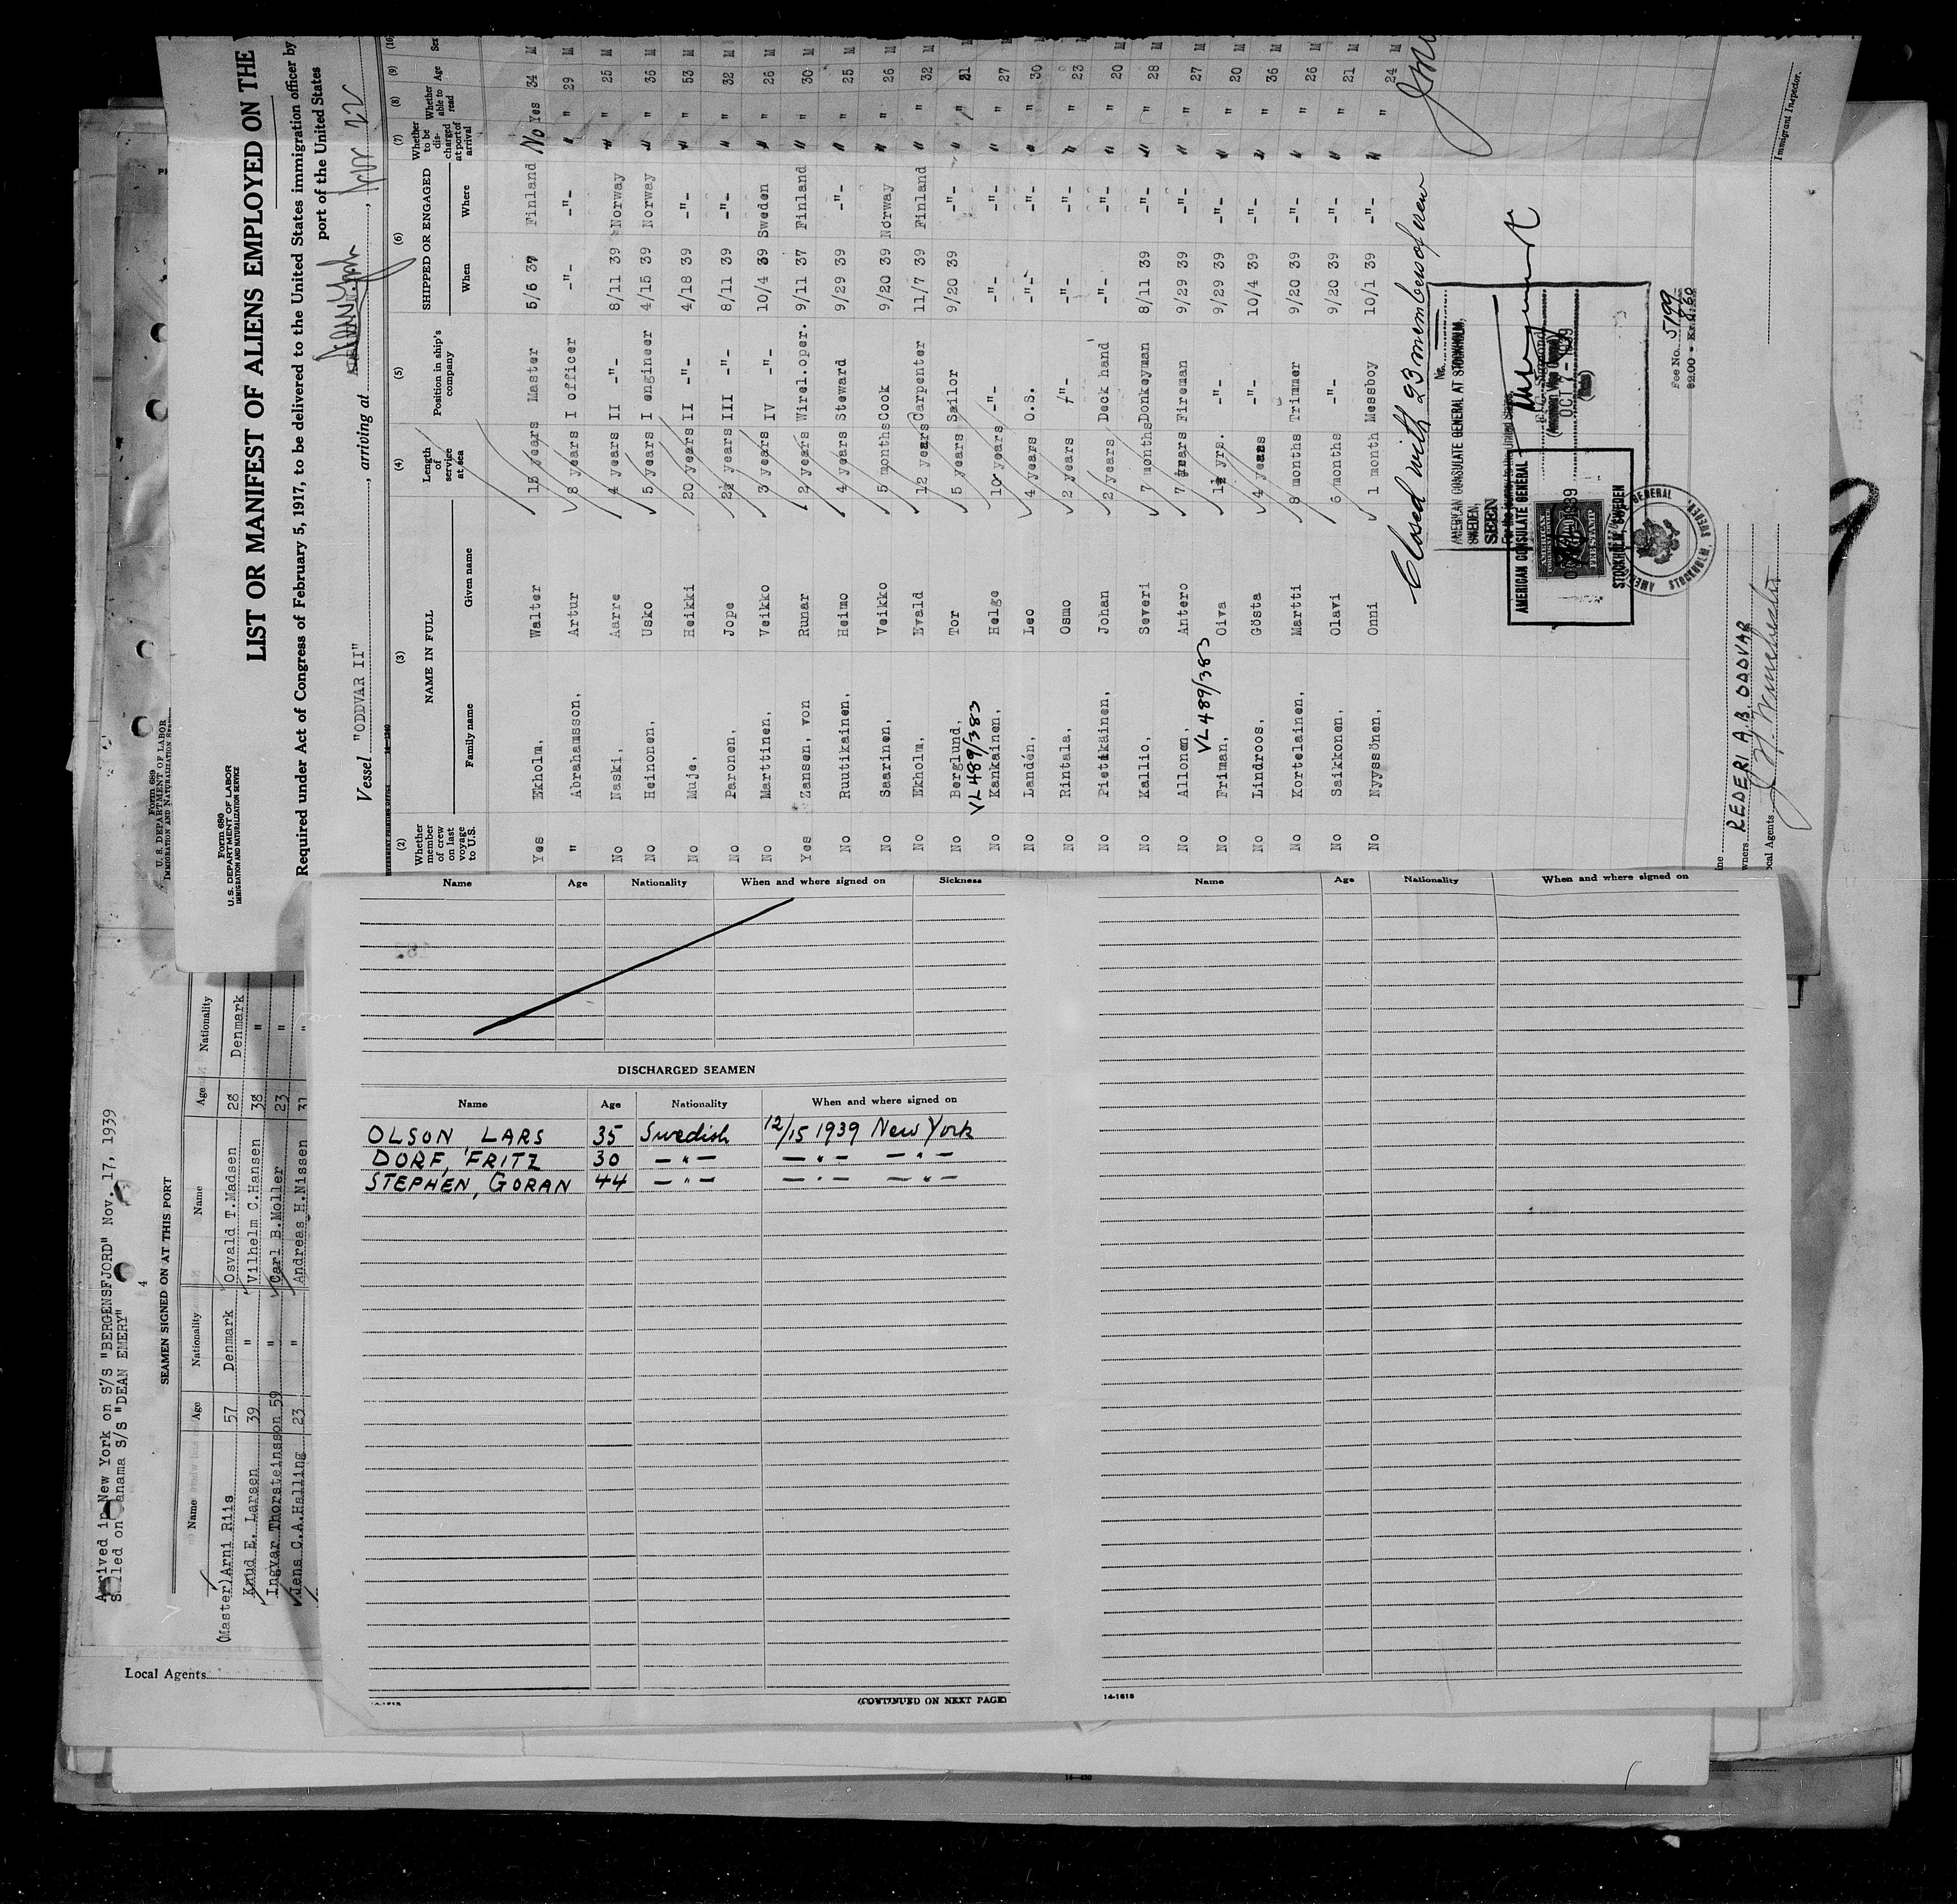 Form 689
U. S. DEPARTMENT OF LABOR
IMMIGRATION AND NATURALIZATION
Form 680
U. S. DEPARTMENT OF LABOR
IMMIGRATION AND NATURALIZATION SERVICE
LIST OR MANIFEST OF ALIENS EMPLOYED ON THE
Required under Act of Congress of February 5, 1917, to be delivered to the United States immigration officer by
port of the United States
Vessel "ODDVAR II", arriving at
(2) (3) (4) (5) (6) (7) (8) (9) (10)
Whether member of crew on last voyage to U.S. NAME IN FULL Length of service at sea Position in ship's company SHIPPED OR ENGAGED Whether to be discharged at port of arrival Whether able to read Age Sex
Family name Given name When Where
Yes Ekholm, Walter 15 years Master 5/5 37 Finland No Yes 34 M
" Abrahamsson, Artur 8 years I officer -"- -"- " " 29 M
No Naski, Aarre 4 years II -"- 8/11 39 Norway " " 25 M
No Heinonen, Usko 5 years I engineer 4/15 39 Norway " " 35 M
No Muje, Heikki 20 years II -"- 4/18 39 -"- " " 53 M
No Paronen, Jope 2½ years III -"- 8/11 39 -"- " " 32 M
No Marttinen, Veikko 3 years IV -"- 10/4 39 Sweden " " 26 M
Yes Zansen, von Runar 2 years Wirel.oper. 9/11 37 Finland " " 30 M
No Ruutikainen, Heimo 4 years Steward 9/29 39 -"- " " 25 M
No Saarinen, Veikko 5 months Cook 9/20 39 Norway " " 26 M
No Ekholm, Evald 12 years Carpenter 11/7 39 Finland " " 32 M
No Berglund, Tor 5 years Sailor 9/20 39 -"- " " 21 M
VL489/383
No Kankainen, Helge 10 years -"- -"- -"- " " 27 M
No Landén, Leo 4 years O.S. -"- -"- " " 30 M
No Rintala, Osmo 2 years -"- -"- -"- " " 23 M
No Pietikäinen, Johan 2 years Deck hand -"- -"- " " 20 M
No Kallio, Severi 7 months Donkeyman 8/11 39 -"- " " 28 M
No Allonen, Antero 7 years Fireman 9/29 39 -"- " " 27 M
VL489/383
No Friman, Oiva 1½ yrs. -"- 9/29 39 -"- " " 20 M
No Lindroos, Gösta 4 years -"- 10/4 39 -"- " " 36 M
No Kortelainen, Martti 8 months Trimmer 9/20 39 -"- " " 26 M
No Saikkonen, Olavi 6 months -"- 9/20 39 -"- " " 21 M
No Nyyssönen, Onni 1 month Messboy 10/1 39 -"- " " 24 M
Closed with 23 members of crew
No.
AMERICAN CONSULATE GENERAL AT STOCKHOLM,
SWEDEN.
SEEN
For the journey to the United States
AMERICAN CONSULATE GENERAL
OCT 7 - 1939
STOCKHOLM, SWEDEN
Fee No. 5199
$2.00 =
REDERI A.B. ODDVAR
Local Agents
Immigrant Inspector.
Arrived in New York on S/S "BERGENSFJORD" Nov. 17, 1939
Sailed on Panama S/S "DEAN EMERY"
4
SEAMEN SIGNED ON AT THIS PORT
Name Age Nationality Name Age Nationality
(Master) Arni Riis 57 Denmark Osvald T.Madsen 28 Denmark
Knud E. Larsen 39 " Vilhelm C.Hansen 38 "
Ingvar Thorsteinsson 59 " Carl B.Moller 23 "
Jens C.A.Halling 23 " Andreas H.Nissen 31 "
Local Agents
Name Age Nationality When and where signed on Sickness
DISCHARGED SEAMEN
Name Age Nationality When and where signed on
OLSON, LARS 35 Swedish 12/15 1939 New York
DORF, FRITZ 30 -"- -"- -"-
STEPHEN, GORAN 44 -"- -"- -"-
(CONTINUED ON NEXT PAGE)
Name Age Nationality When and where signed on
14-1618